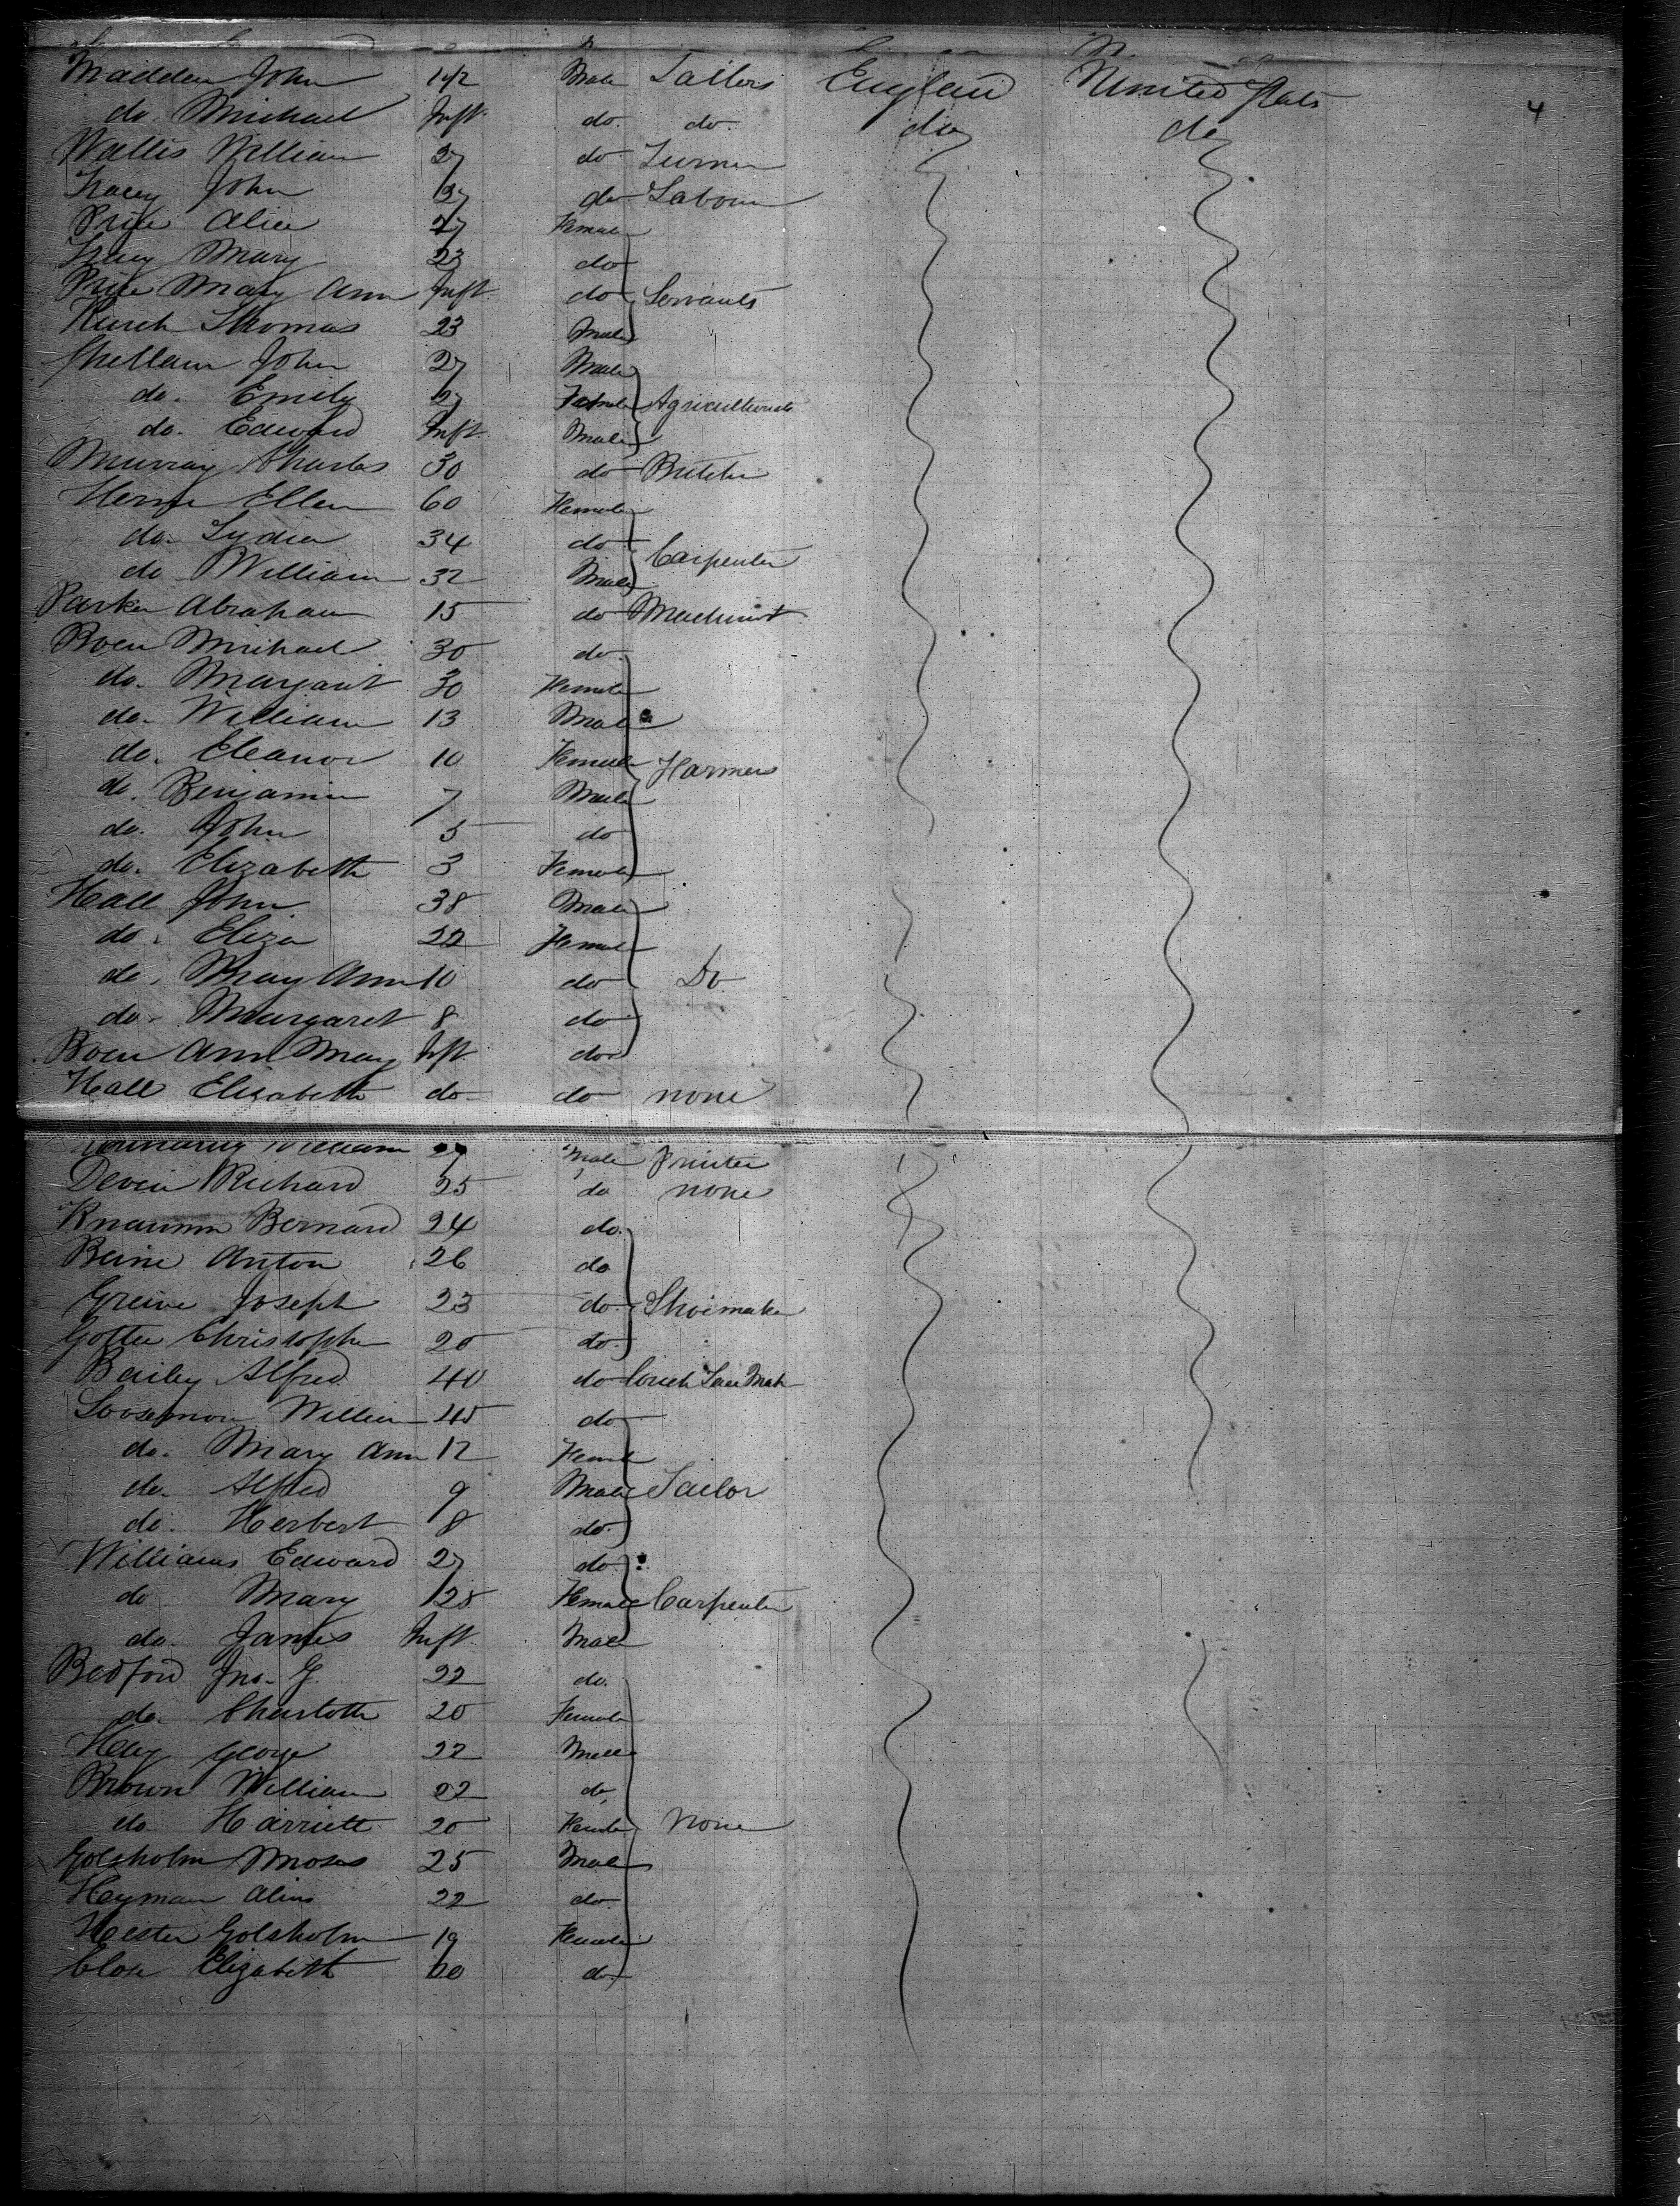 Madden John 1 1/2 Male Tailors England United Stats 4
do. Michael Inft. do. do. do do
Wallis William 27 do Turner
Tracey John 37 do Labour
Price Alice 27 Female
Tracy Mary 23 do
Price Mary Ann Inft. do Servants
Thomas 23 Male
John 27 Male
do. Emily 27 Female Agriculturals
do. Edward Inft. Male
Murray Charles 30 do Butcher
Ellen 60 Female
do. Lydia 34 do
do William 32 Male Carpenter
Parker Abraham 15 do Machinist
Boen Michael 30 do.
do. Margaret 30 Female
do. William 13 Male
do. Eleanor 10 Female Farmers
do. Benjamin 7 Male
do. John 5 do
do. Elizabeth 3 Female
Hall John 38 Male
do. Eliza 22 Female
do. Mary Ann 10 do Do
do. Margaret 8 do
Boen Ann Mary Inft. do
Hall Elizabeth do do none
William Male Printer
Devin Richard 25 do none
Bernard 24 do.
Beine Anton 26 do
Greive Joseph 23 do. Shoemaker
Christopher 20 do.
Bailey Alfred 40 do Couch Lace Mak
Loosemore William 45 do.
do. Mary Ann 12 Female
do. Alfred 9 Male Tailor
do. Herbert 8 do.
Williams Edward 27 do.
do Mary 28 Female Carpenter
do. James Inft. Male
Bedford Jno. G. 22 do.
do. Charlotte 20 Female
George 22 Male
Brown William 22 do,
do. Harriett 20 Female None
Golsholm Moses 25 Male
Heyman 22 do.
Hester Golsholm 19 Female
Close Elizabeth do